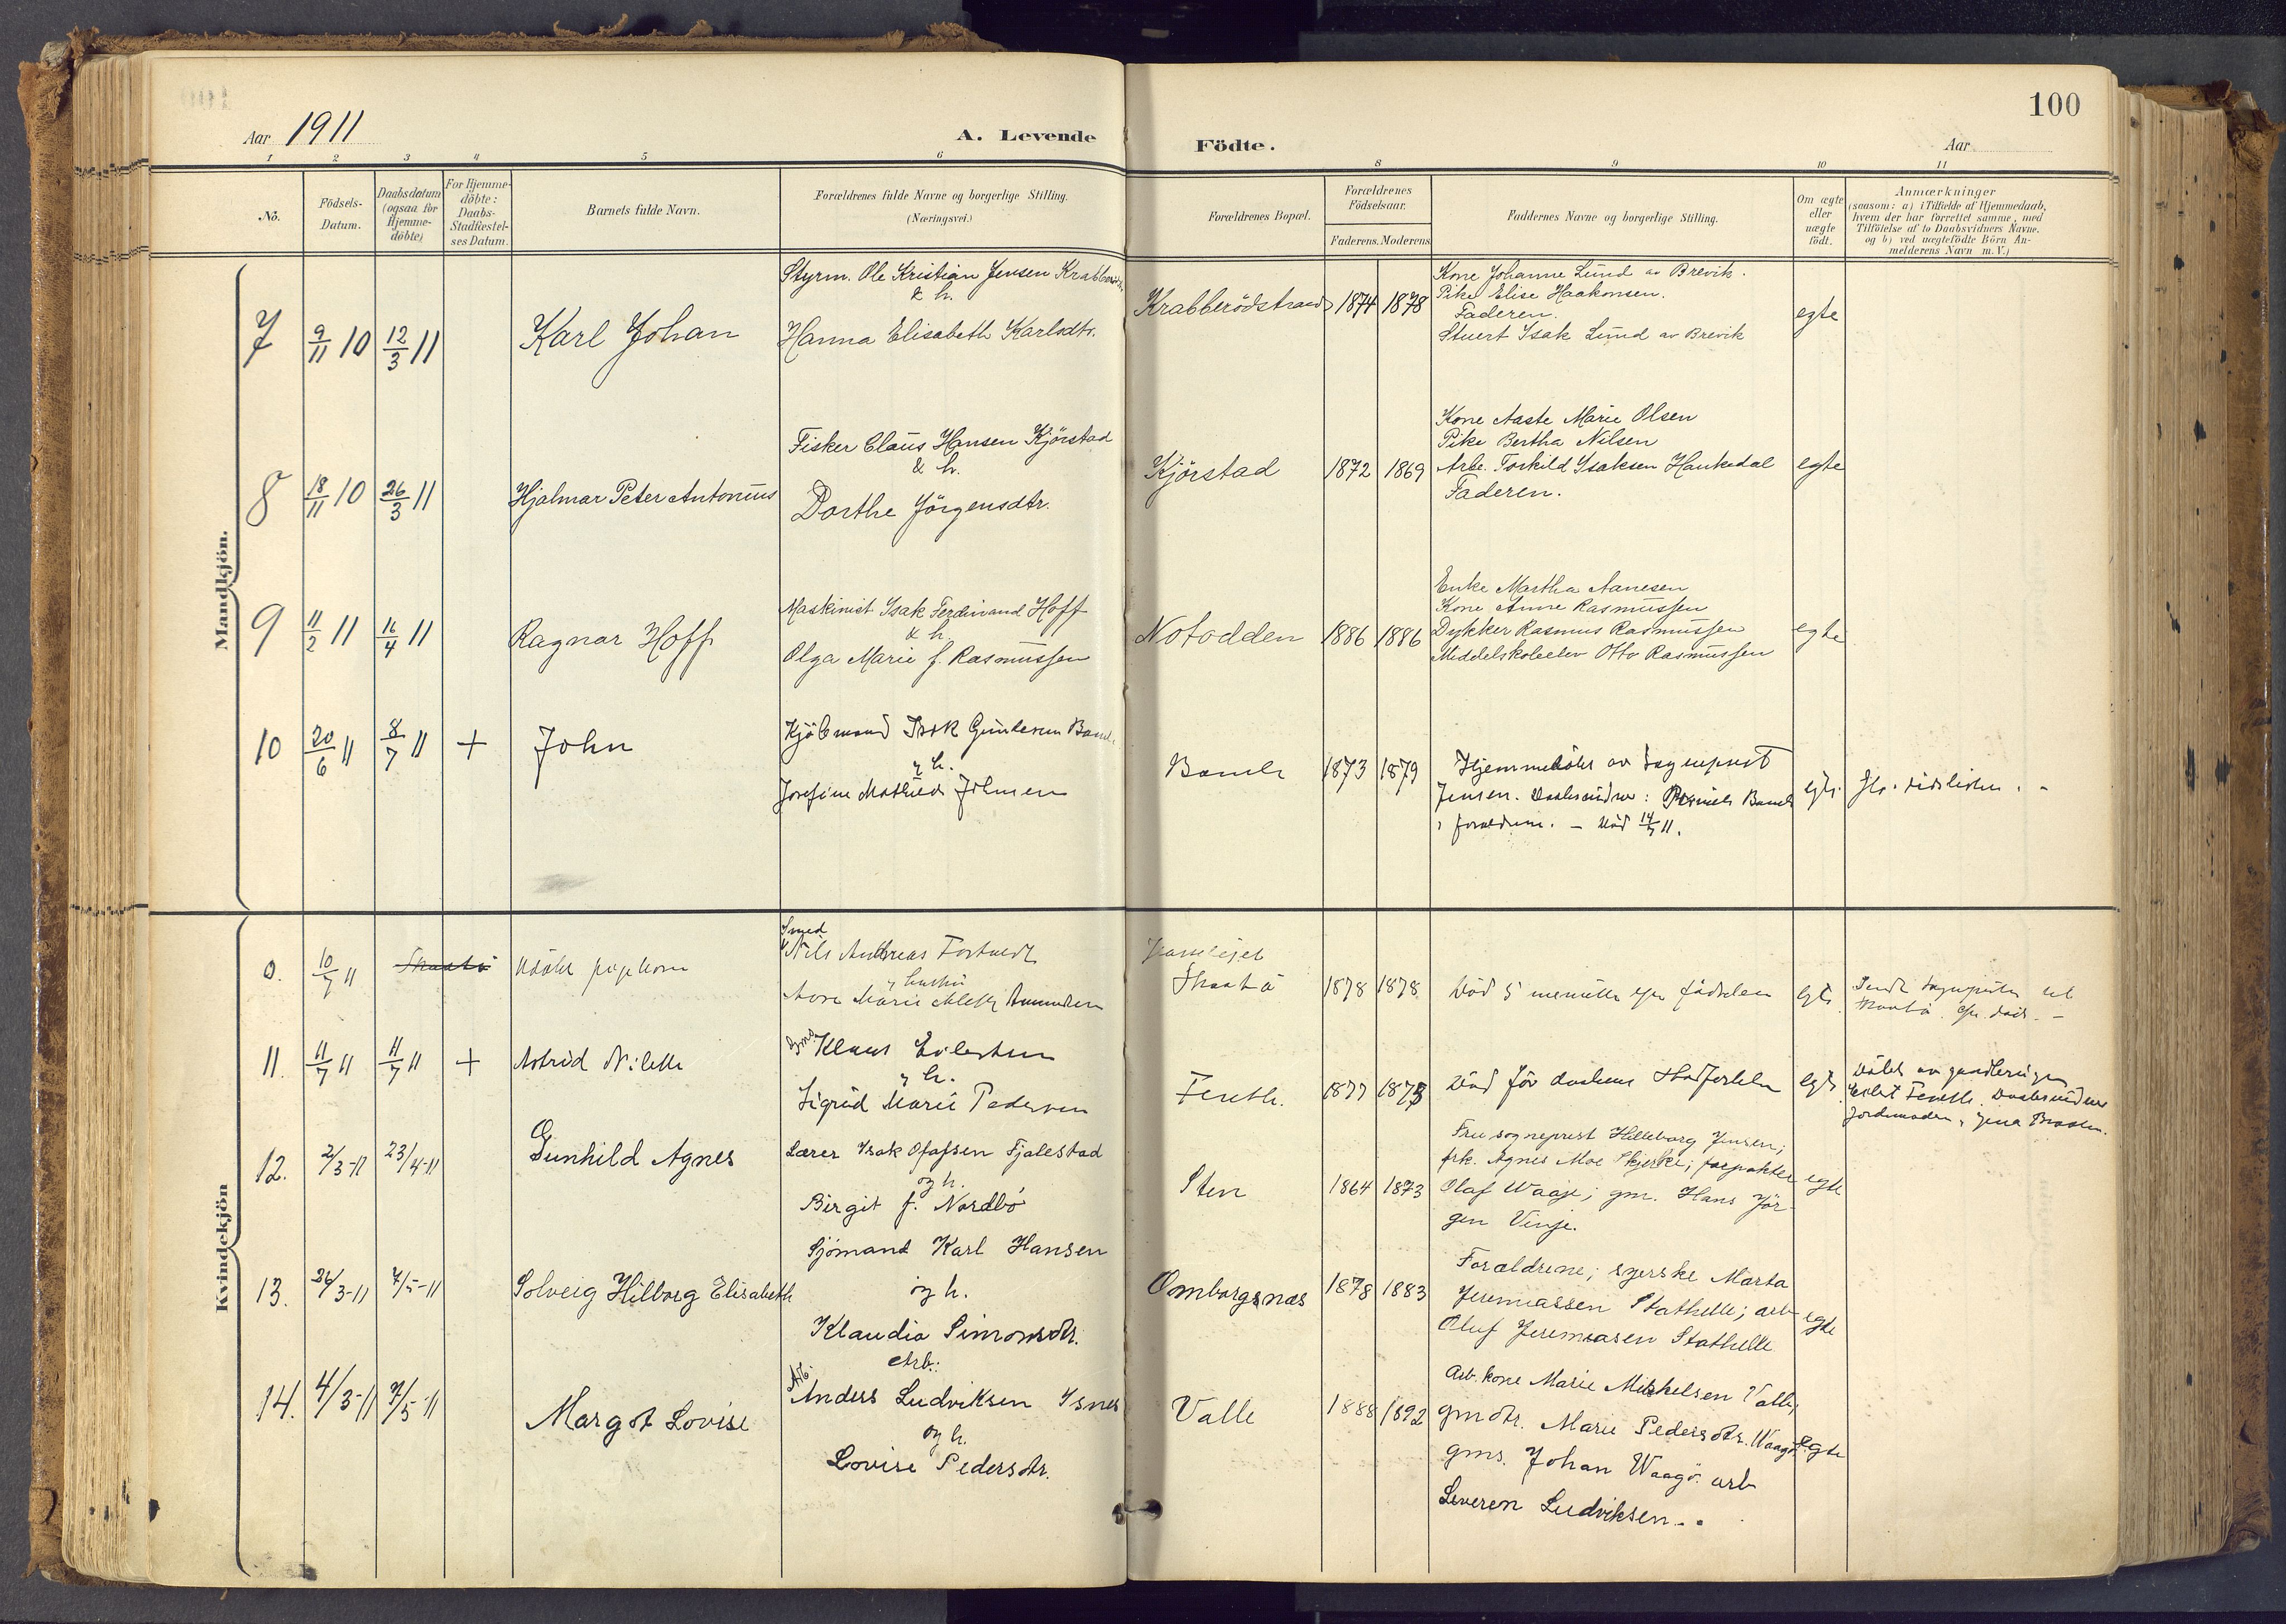 100
Aar 1911
A. Levende
Födte.
Aar
1 2 3 4 5 6 8 9 10 11
No.
Födsels-
Datum.
Daabsdatum
(ogsaa for
Hjemme-
döbte)
For Hjemme-
döbte:
Daabs-
Stadfæstel-
ses Datum.
Barnets fulde Navn.
Forældrenes fulde Navne og borgerlige Stilling.
(Næringsvei.)
Forældrenes Bopæl.
Forældrenes
Födselsaar.
Faderens. Moderens.
Faddernes Navne og borgerlige Stilling.
Om ægte
eller
uægte
födt.
Anmærkninger
(saasom: a) i Tilfælde af Hjemmedaab,
hvem der har forrettet samme, med
Tilföielse af to Daabsvidners Navne.
og b) ved uægtefödte Börn An-
melderens Navn m. V.)
Mandkjön.
7 9/11 10 12/3 11 Karl Johan
Styrm. Ole Kristian Jensen
& h.
Hanna Elisabeth Karlsdtr.
Krabberödstrand 1874 1878
Kone Johanne Lund av Brevik.
Pike Elise Haakonsen.
Faderen.
Stuert Isak Lund av Brevik
egte
8 18/11 10 26/3 11 Hjalmar Peter Antonius
Fisker Claus Hansen Kjörstad
& h.
Dorthe Jörgensdtr.
Kjörstad 1872 1869
Kone Aaste Marie Olsen
Pike Bertha Nilsen
Arb. Torkild Isaksen Haukedal
Faderen.
egte
9 11/2 11 16/4 11 Ragnar Hoff
Maskinist Isak Ferdinand Hoff
& h.
Olga Marie f. Rasmussen
Notodden 1886 1886
Enke Martha Aanesen
Kone Anne Rasmussen
Dykker Rasmus Rasmussen
Middelskoleelev Otto Rasmussen
egte
10 20/6 11 8/7 11 + John
Kjöbmand Isak Gundersen
& h.
Josefine Mathilde
Bamle 1873 1879
Hjemmedöbt av sogneprest
Jensen.
forældrene. – död 14/7 11.
egte
Kvindekjön
0. 10/7 11
Smed
Nils Andreas
Skaatö 1878 1878
Död 5 minutter efter födselen
egte
11. 11/7 11 11/7 11 + Astrid Nilette
Klaus Eilertsen
& h.
Sigrid Marie Pedersen
1877 1873
Död för daabens stadfestelse
egte
12. 2/3-11 23/4-11 Gunhild Agnes
Lærer Isak Olafsen Fjalestad
og h.
Birgit f. Nordbö
Sten 1864 1873
Fru sogneprest Hilleborg Jensen;
frk. Agnes Moe Skjerke; forpakter
Olaf Waaje; gm. Hans Jör-
gen Vinje.
egte
13. 26/3-11 7/5-11 Solveig Hilborg Elisabeth
Sjömand Karl Hansen
og h.
Klaudia Simonsdtr.
Ombargsnæs 1878 1883
Forældrene; syerske Marta
Jeremiassen Stathelle; arb.
Oluf Jeremiasen Stathelle
egte
14. 4/3-11 7/5-11 Margot Lovise
Arb.:
Anders Ludviksen
og h.
Lovise Pedersdtr.
Valle 1888 1892
Arb. kone Marie Mikkelsen Valle;
gmdtr. Marie Pedersdtr. Waagö.
gms. Johan Waagö. arb
Severen Ludviksen.
egte